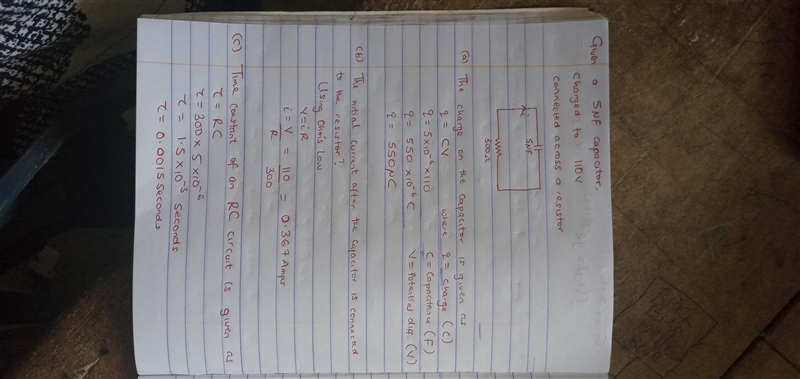 Given a 5NF capacitor,
charged to 110V
connected across a resistor
5NF
i
300Ω
(a) The charge on the capacitor is given as
q = CV where q = charge (C)
q = 5×10⁻⁶×110 C = Capacitance (F)
q = 550 ×10⁻⁶ C V = Potential diff. (V)
q = 550NC
(b) The initial current after the capacitor is connected
to the resistor?
Using Ohm's Law
V = iR
i = V/R = 110/300 = 0.367 Amps
(c) Time constant of an RC circuit is given as
τ = RC
τ = 300 × 5 ×10⁻⁶
τ = 1.5 ×10⁻³ seconds
τ = 0.0015 seconds